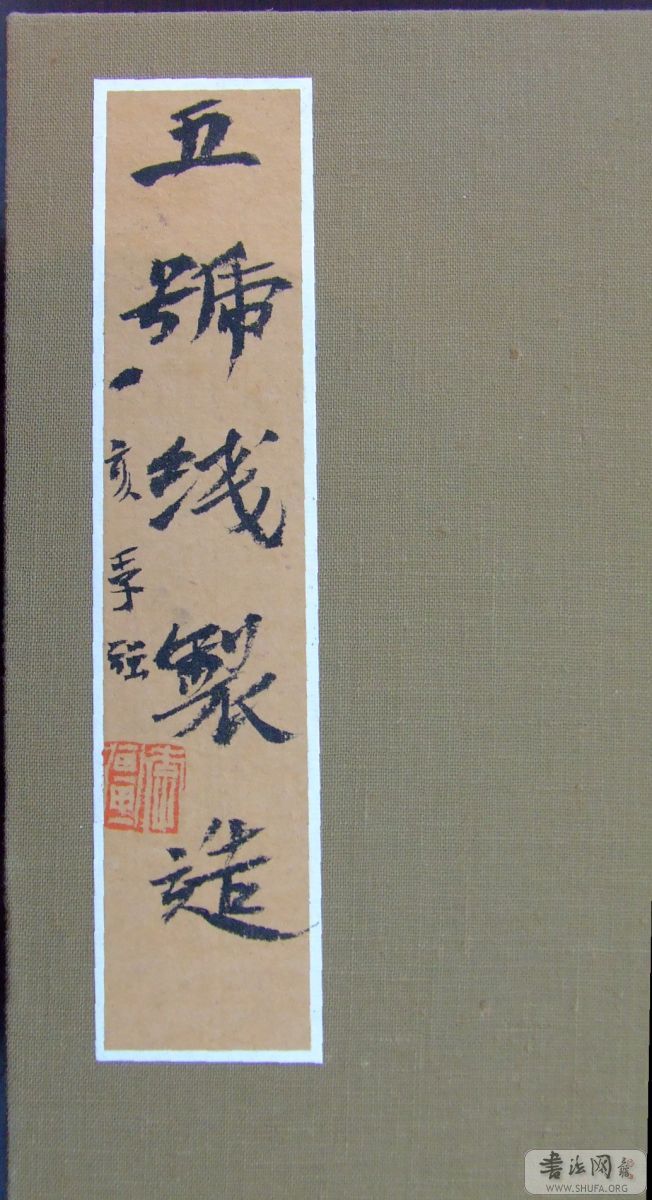 五號线製造
亥季
書法网
WWW.SHUFA.ORG